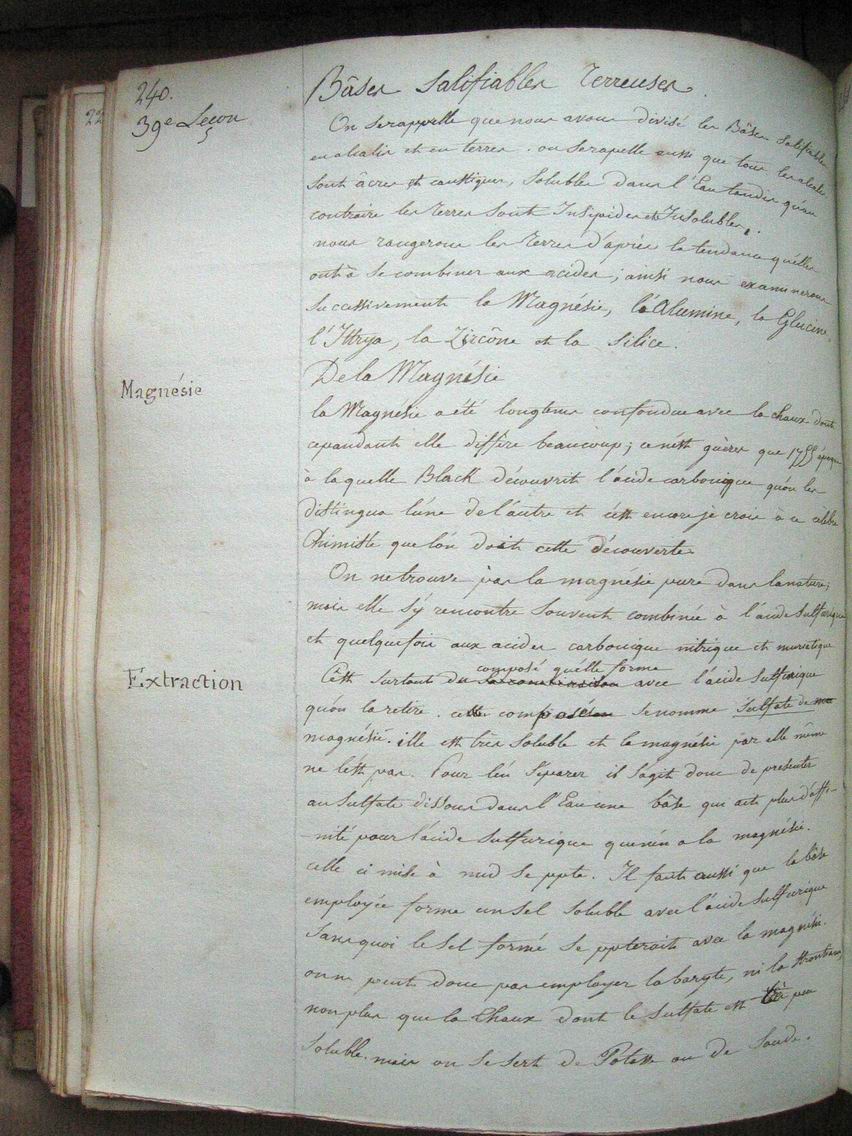 240.
39e Leçon
22
Bâses Salifiables Terreuses.
On se rappelle que nous avons divisé les Bâses salifiables
en alcalis et en terres. on se rapelle aussi que tous les alcalis
sont âcres et caustiques, solubles dans l'Eau tandis qu'au
contraire les terres sont Insipides et Insolubles.
nous rangerons les Terres d'après la tendance qu'elles
ont à se combiner aux acides; ainsi nous examinerons
successivement la Magnésie, l'Alumine, la Glucine,
l'Ittrya, la Zircône et la silice.
De la Magnésie
Magnésie
la Magnésie a été longtems confondue avec la chaux dont
cependant elle diffère beaucoup; ce n'est guères que 1755 époque
à laquelle Black découvrit l'acide carbonique qu'on les
distingua l'une de l'autre et c'est encore je crois à ce célèbre
Chimiste que l'on doit cette découverte.
On ne trouve pas la magnésie pure dans la nature;
mais elle s'y rencontre souvent combinée à l'acide sulfurique
et quelquefois aux acides carbonique nitrique et muriatique
Extraction
composé qu'elle forme
C'est surtout du avec l'acide sulfurique
qu'on la retire. se nomme Sulfate de
magnésie. elle est très soluble et la magnésie par elle même
ne l'est pas. Pour l'en séparer il s'agit donc de présenter
au sulfate dissous dans l'Eau une bâse qui ait plus d'affi-
nité pour l'acide sulfurique que n'en a la magnésie.
celle ci mise à nud se ppte. Il faut aussi que la bâse
employée forme un sel soluble avec l'acide sulfurique
sans quoi le sel formé se ppterait avec la magnésie.
on ne peut donc pas employer la baryte, ni la strontiane,
non plus que la Chaux dont le sulfate est très peu
soluble. mais on se sert de Potasse ou de Soude.